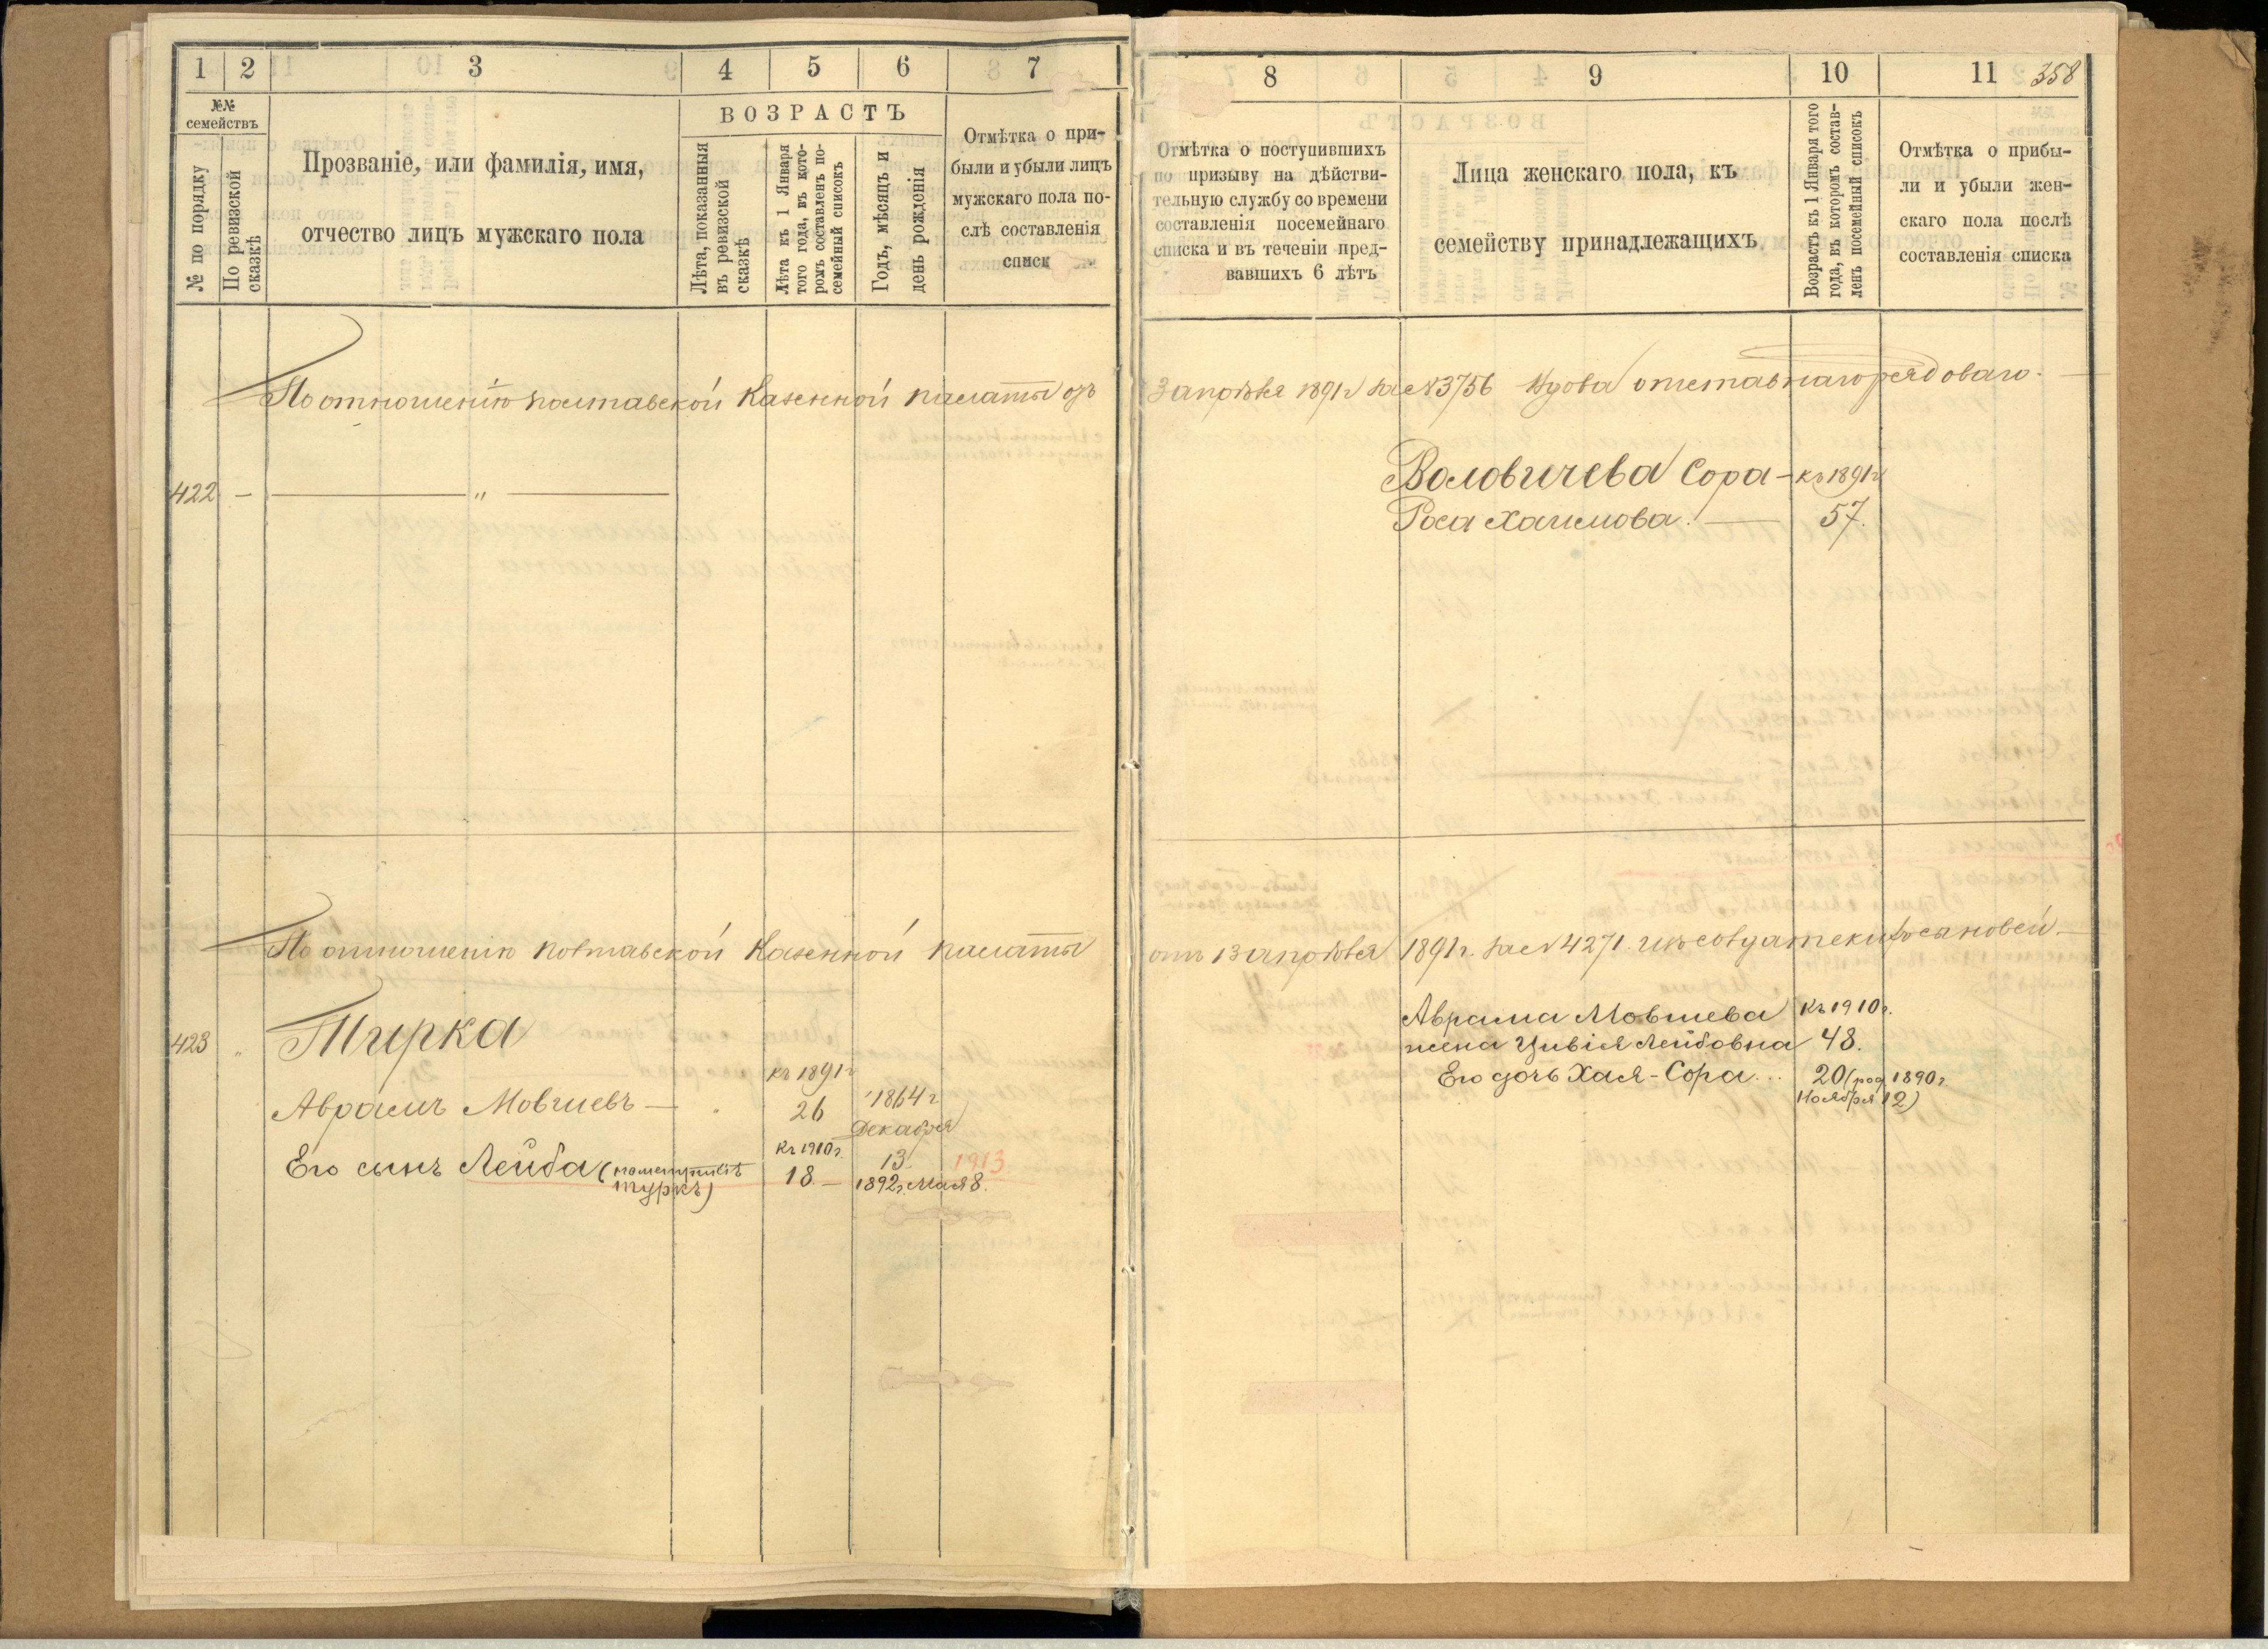 1 2 3 4 5 6 7
№№ семействъ
№ по порядку
По ревизской сказкѣ
Прозваніе, или фамилія, имя,
отчество лицъ мужскаго пола
ВОЗРАСТЪ
Лѣта, показанныя
въ ревизской
сказкѣ
Лѣта къ 1 Января
того года, въ кото-
ромъ составленъ по-
семейный списокъ
Годъ, мѣсяцъ и
день рожденія
Отмѣтка о при-
были и убыли лицъ
мужскаго пола по-
слѣ составленія
списк
По отношенію Полтавской Казенной палаты отъ
422 — — „ —
По отношенію Полтавской Казенной палаты
423 „ Тирка
къ 1891 г
Аврамъ Мовшевъ — 26 1864 г
Декабря
13
къ 1910 г.
Его сынъ Лейба ( 18. — 1892 г. Мая 8. 1913
туркъ)
8 9 10 11 358
Отмѣтка о поступившихъ
по призыву на дѣйстви-
тельную службу со времени
составленія посемейнаго
списка и въ теченіи пред-
вавшихъ 6 лѣтъ
Лица женскаго пола, къ
семейству принадлежащихъ
Возрастъ къ 1 Января того
года, въ которомъ состав-
ленъ посемейный списокъ
Отмѣтка о прибы-
ли и убыли жен-
скаго пола послѣ
составленія списка
3 апрѣля 1891 г за № 3756 Вдова отставнаго рядоваго.
Воловичева Сора — къ 1891 г
Роса Хаимова. — 57.
отъ 13 апрѣля 1891 г. за № 4271. сыновей.
Аврама Мовшева къ 1910 г.
жена Цивія Лейбовна 48.
Его дочь Хая-Сора... 20 (род 1890 г.
Ноября 12)